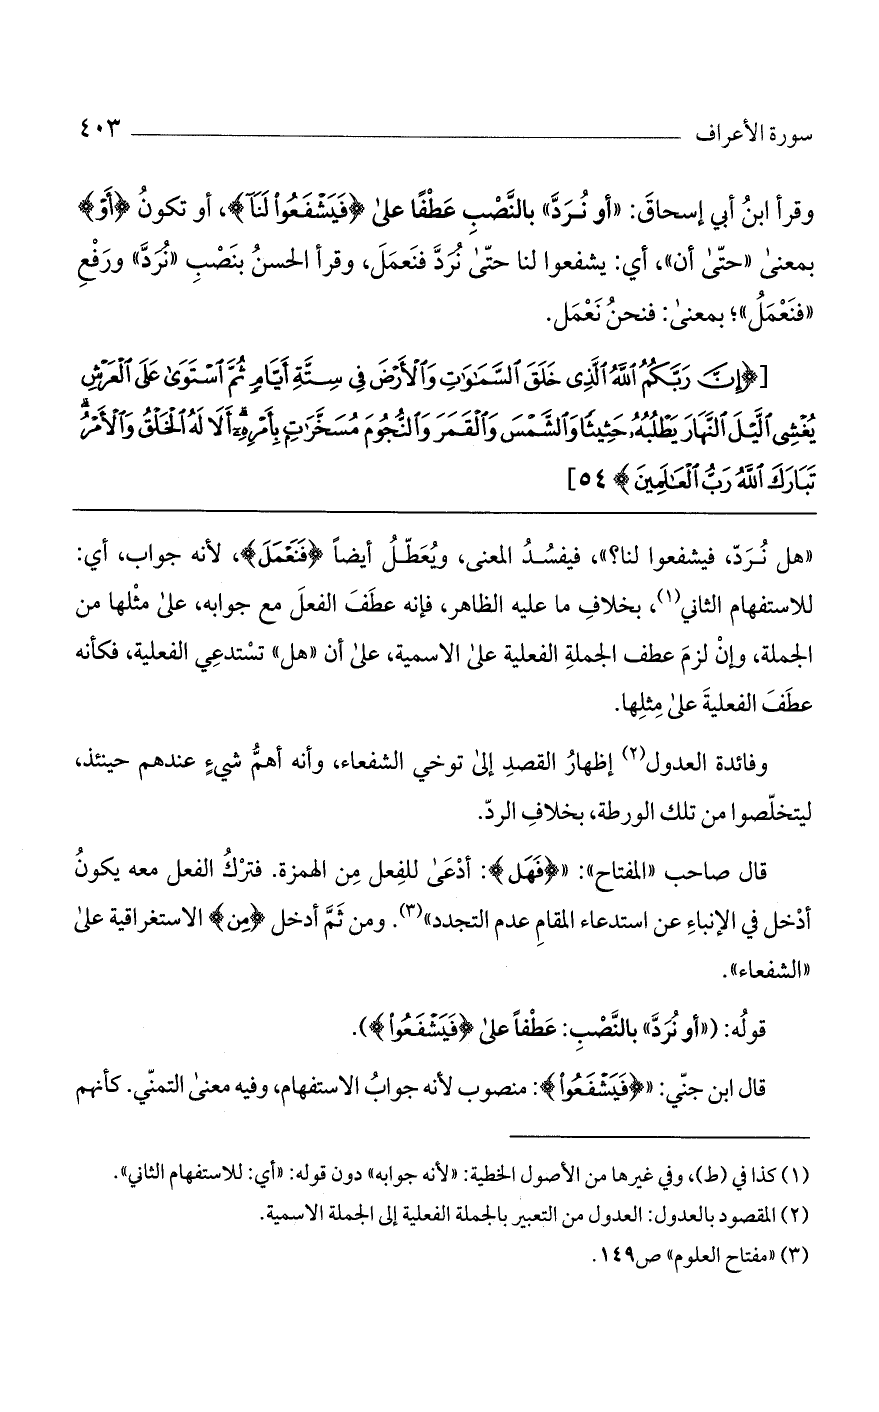 سورة الأعراف ٤٠٣
وقرأ ابنُ أبي إسحاقَ: «أو نُـرَدَّ» بالنَّصْبِ عَطْفًا علىٰ ﴿فَيَشْفَعُوا۟ لَنَآ﴾، أو تكونُ ﴿أَوْ﴾
بمعنىٰ «حتّىٰ أن»، أي: يشفعوا لنا حتّىٰ نُرَدَّ فنَعمَلَ، وقرأ الحسنُ بنَصْبِ «نُرَدَّ» ورَفْعِ
«فنَعْمَلُ»؛ بمعنىٰ: فنحنُ نَعْمَل.
[﴿إِنَّ رَبَّكُمُ ٱللَّهُ ٱلَّذِى خَلَقَ ٱلسَّمَٰوَٰتِ وَٱلْأَرْضَ فِى سِتَّةِ أَيَّامٍ ثُمَّ ٱسْتَوَىٰ عَلَى ٱلْعَرْشِ
يُغْشِى ٱلَّيْلَ ٱلنَّهَارَ يَطْلُبُهُۥ حَثِيثًا وَٱلشَّمْسَ وَٱلْقَمَرَ وَٱلنُّجُومَ مُسَخَّرَٰتٍۭ بِأَمْرِهِۦٓ ۗ أَلَا لَهُ ٱلْخَلْقُ وَٱلْأَمْرُ ۗ
تَبَارَكَ ٱللَّهُ رَبُّ ٱلْعَٰلَمِينَ﴾ ٥٤]
«هل نُـرَدّ، فيشفعوا لنا؟»، فيفسُـدُ المعنى، ويُعَطّـلُ أيضاً ﴿فَنَعْمَلَ﴾، لأنه جواب، أي:
للاستفهام الثاني(١)، بخلافِ ما عليه الظاهر، فإنه عطَفَ الفعلَ مع جوابه، علىٰ مثْلها من
الجملة، وإنْ لزمَ عطف الجملةِ الفعلية علىٰ الاسمية، علىٰ أن «هل» تسْتدعِي الفعلية، فكأنه
عطَفَ الفعليةَ علىٰ مِثلِها.
وفائدة العدول(٢) إظهارُ القصدِ إلىٰ توخي الشفعاء، وأنه أهمُّ شيءٍ عندهم حينئذ،
ليتخلّصوا من تلك الورطة، بخلافِ الردّ.
قال صاحب «المفتاح»: «﴿فَهَل﴾: أدْعَىٰ للفِعل مِن الهمزة. فترْكُ الفعل معه يكونُ
أدْخل في الإنباءِ عن استدعاء المقامِ عدم التجدد»(٣). ومن ثَمَّ أدخل ﴿مِن﴾ الاستغراقية علىٰ
«الشفعاء».
قولُه: («أو نُرَدَّ» بالنَّصْبِ: عَطْفاً علىٰ ﴿فَيَشْفَعُوا۟﴾).
قال ابن جنّي: «﴿فَيَشْفَعُوا۟﴾: منصوب لأنه جوابُ الاستفهام، وفيه معنىٰ التمنّي. كأنهم
(١) كذا في (ط)، وفي غيرها من الأصول الخطية: «لأنه جوابه» دون قوله: «أي: للاستفهام الثاني».
(٢) المقصود بالعدول: العدول من التعبير بالجملة الفعلية إلى الجملة الاسمية.
(٣) «مفتاح العلوم» ص١٤٩.